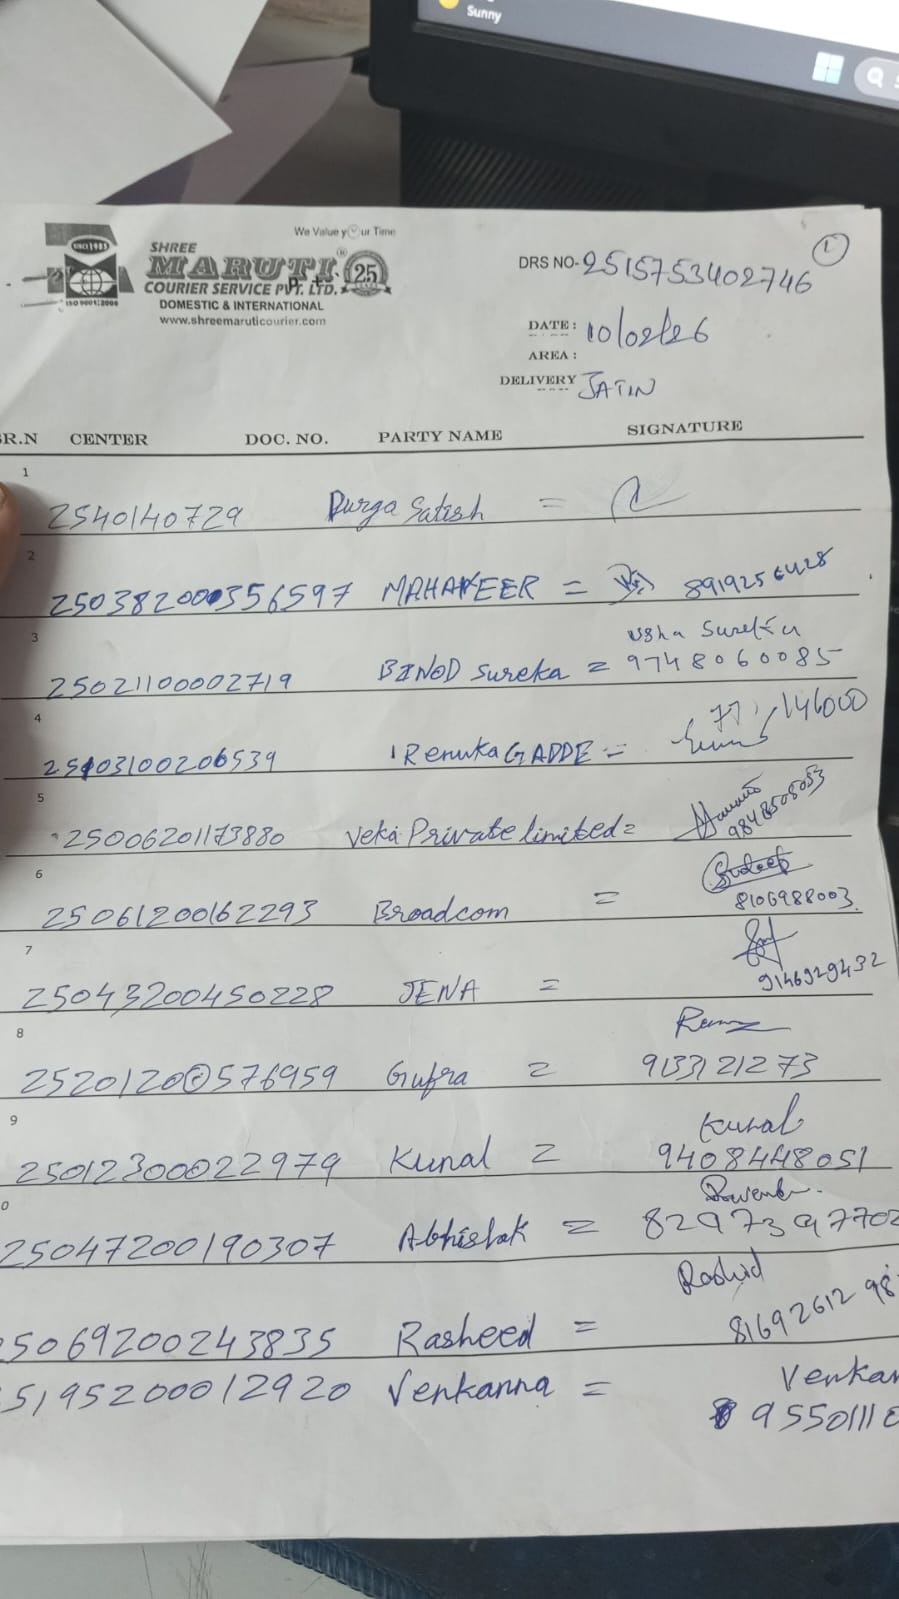 Sunny
We Value your Time
SINCE 1985
SHREE
MARUTI
COURIER SERVICE PVT. LTD.
25
ISO 9001:2008
DOMESTIC & INTERNATIONAL
www.shreemaruticourier.com
1
DRS NO- 2515753402746
DATE: 10/02/26
AREA:
DELIVERY JATIN
SR.N CENTER DOC. NO. PARTY NAME SIGNATURE
1
2540140729 Durga Satish =
2
250382000356597 MAHAVEER = 8919256428
3
Usha Sureka
25021100002719 BINOD Sureka = 9748060085
4
146000
25103100206539 Renuka GADDE =
5
25006201173880 Veka Private limited = 9848508053
6
Sudeep
25061200162293 Broadcom = 8106988003
7
25043200450228 JENA = 9146929432
8
252012000576959 Gufra = 9133121273
9
Kunal
25012300022979 Kunal = 9408448051
0
25047200190307 Abhishak = 8297397702
Rashid
5069200243835 Rasheed = 81692612 98
5195200012920 Venkanna = Venkan
9550111